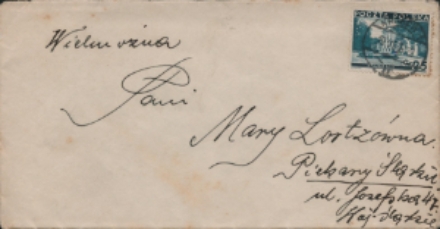 POCZTA POLSKA
25
Wielmożna
Pani
Mary Lortzówna.
Piekary Śląskie
ul. Józefska 47.
Woj. Śląskie